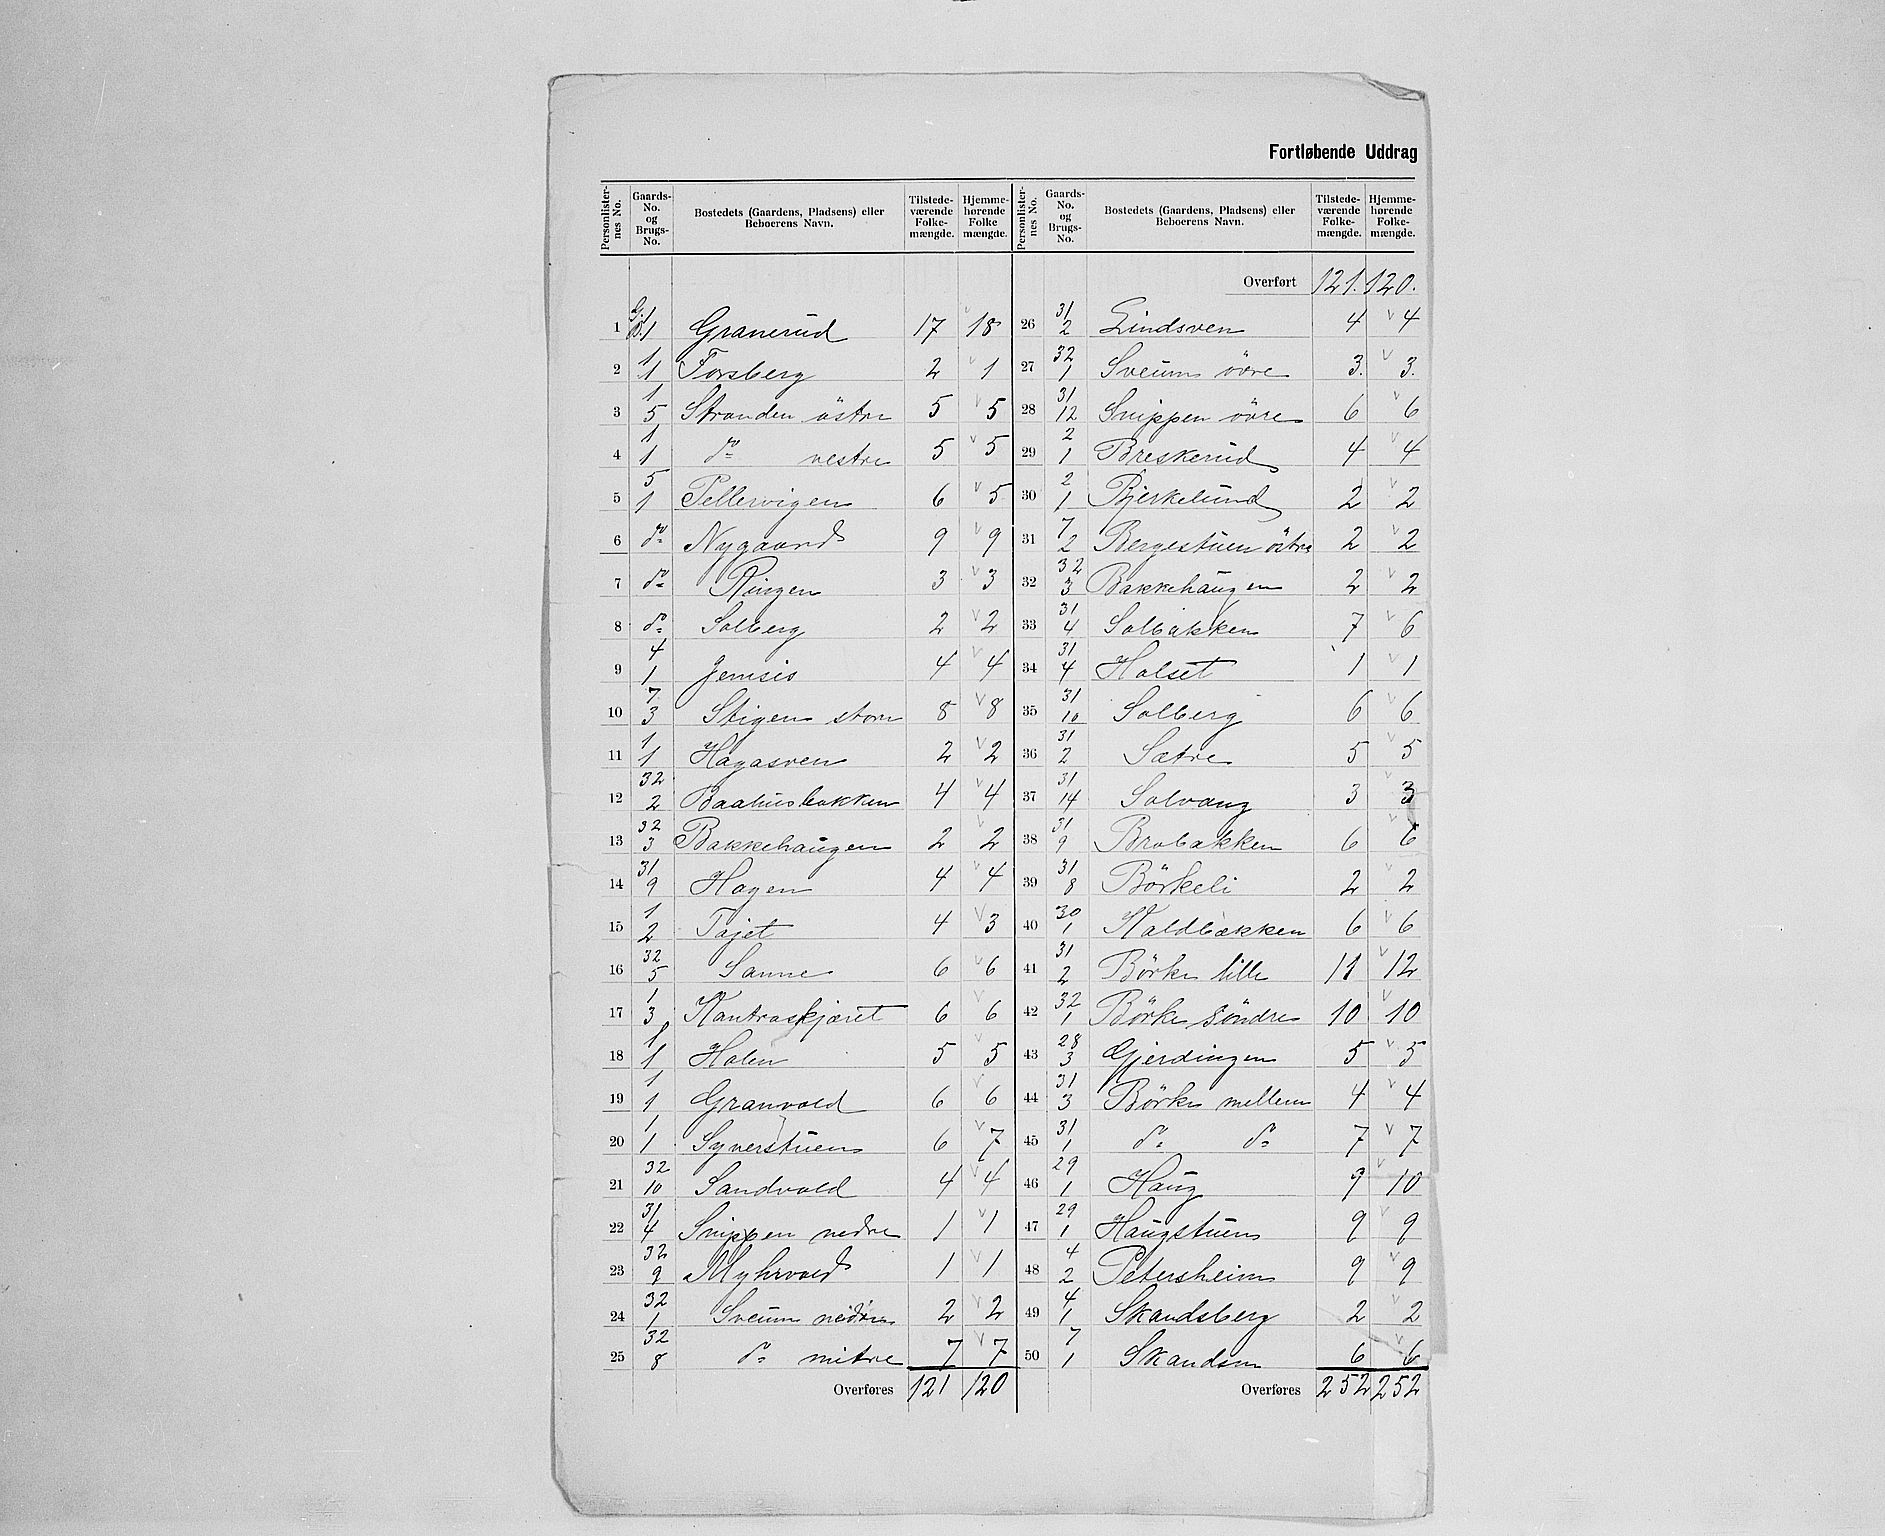 Fortløbende Uddrag
Personlister-nes No. | Gaards-No. og Brugs-No. | Bostedets (Gaardens, Pladsens) eller Beboerens Navn. | Tilstede-værende Folke-mængde. | Hjemme-hørende Folke mængde.
1 G. 1 B. 1 Granerud 17 18
2 1/1 Forsberg 2 1
3 1/5 Stranden östre 5 5
4 1/1 do vestre 5 5
5 5/1 Pellervigen 6 5
6 do Nygaard 9 9
7 do Ringen 3 3
8 do Solberg 2 2
9 4/1 Jemsis 4 4
10 7/3 Stigen store 8 8
11 1/1 Hagasven 2 2
12 32/2 Baahusbakken 4 4
13 32/3 Bakkehaugen 2 2
14 31/9 Hagen 4 4
15 1/2 Tajet 4 3
16 32/5 Sanne 6 6
17 1/3 Kantraskjæret 6 6
18 1/1 Holen 5 5
19 1/1 Granvold 6 6
20 1/1 Syverstuen 6 7
21 32/10 Sandvold 4 4
22 31/4 Snippen nedre 1 1
23 32/9 Myhrvold 1 1
24 32/1 Sveum nedre 2 2
25 32/8 do mitre 7 7
Overføres 121 120
Personlister-nes No. | Gaards-No. og Brugs-No. | Bostedets (Gaardens, Pladsens) eller Beboerens Navn. | Tilstede-værende Folke-mængde. | Hjemme-hørende Folke-mængde.
Overført 121. 120.
26 31/2 Lindsven 4 4
27 32/1 Sveum övre 3. 3.
28 31/12 Snippen övre 6 6
29 2/1 Breskerud 4 4
30 2/1 Bjerkelund 2 2
31 7/2 Bergestuen östre 2 2
32 32/3 Bakkehaugen 2 2
33 31/4 Solbakken 7 6
34 31/4 Holset 1 1
35 31/10 Solberg 6 6
36 31/2 Sætre 5 5
37 31/14 Solvang 3 3
38 31/9 Brobakken 6 6
39 31/8 Börkeli 2 2
40 30/1 Koldbækken 6 6
41 31/2 Börke lille 11 12
42 32/1 Börke söndre 10 10
43 28/3 Gjerdingen 5 5
44 31/3 Börke mellem 4 4
45 31/1 do do 7 7
46 29/1 Haug 9 10
47 29/1 Haugstuen 9 9
48 4/2 Petersheim 9 9
49 4/1 Skandsberg 2 2
50 7/1 Skandsen 6 6
Overføres 252 252